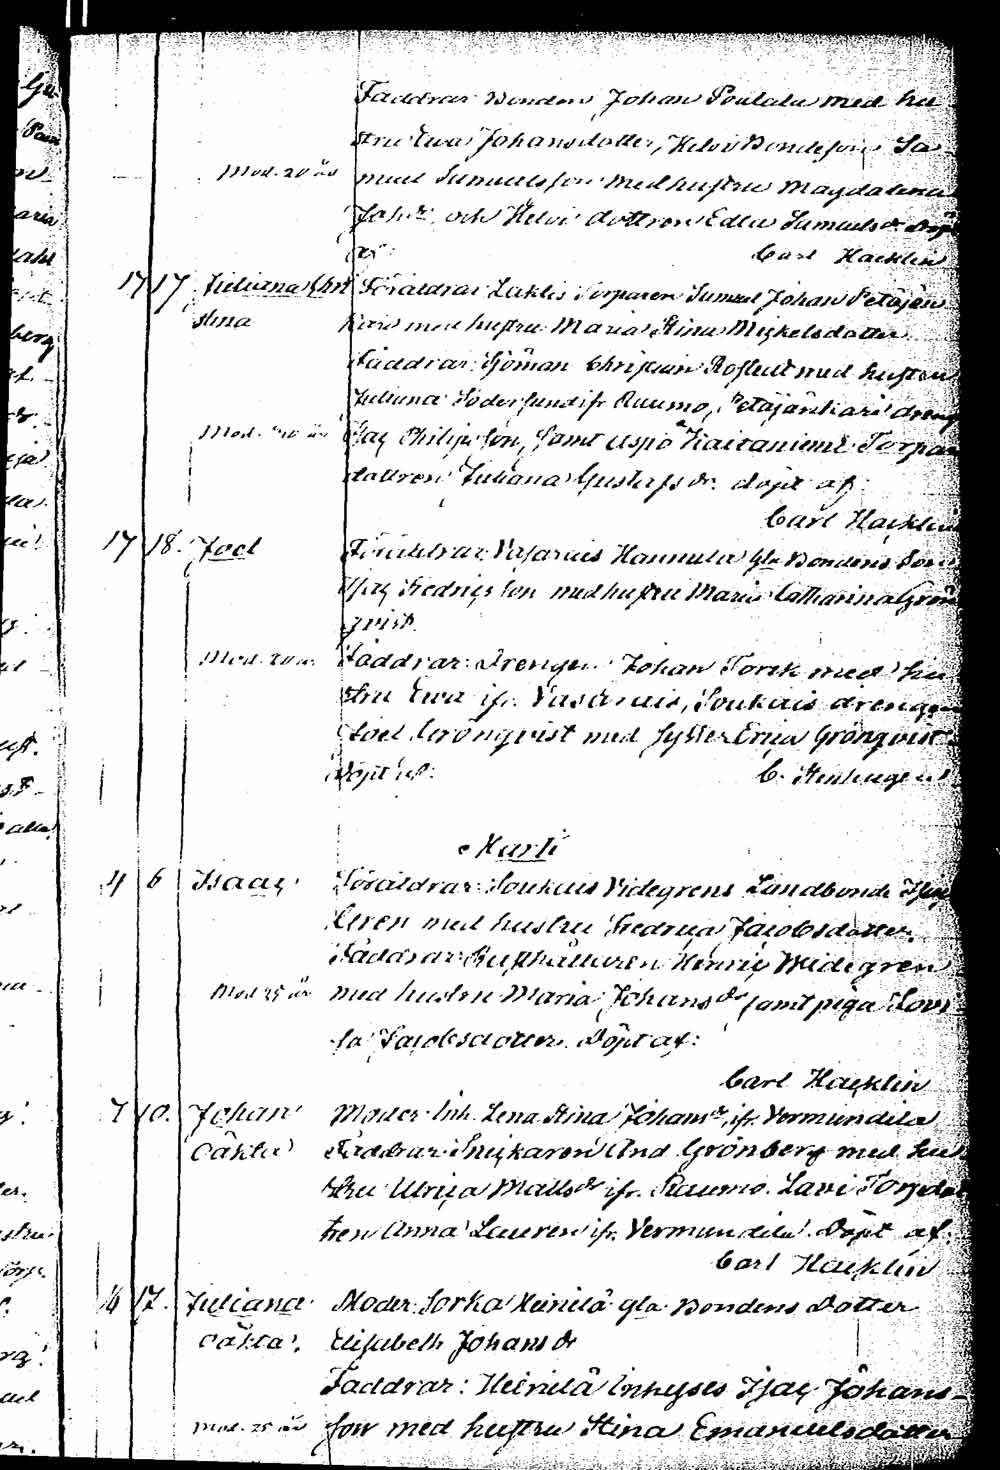 Faddrar Bonden Johan Poulala med hu-
stru Ewa Johansdotter, Heloi Bondeson Sa-
Mod. 20 år muel Samuelsson med hustru Magdalena
Johsdr och Heloi dottren Edla Samuelsdr döpt
af Carl Hacklin
17 17 Juliana Chri Föräldrar Laklis Torparen Samuel Johan Petäjän
stina kari med hustru Maria Stina Mickelsdotter
Faddrar: Sjöman Christian Roslent med hustru
Juliana Södersund ifr Raumo, Petäjänkari dreng
Mod. år Isac Philipsson, samt Uspö Haitaniemi Torpar
dottren Juliana Gustafsdr döpt af
Carl Hacklin
17 18. Joel Föräldrar Vasarais Hannula gla Bondens Son
Isac Fredricsson med hustru Maria Catharina Grön
qvist.
Mod. Faddrar: Drengen Johan Torck med hu
stru Ewa ifr. Vasarais, Soukais drengen
Joel Grönqvist med syster Erica Grönqvist
döpt af: C. Stenhagen
Marti
4 6 Isaac Föräldrar Soukais Videgrens Landbonde Isac
Ceren med hustru Fredrica Jacobsdotter.
Faddrar: Rusthållaren Henric Widegren
Mod. 25 år med hustru Maria Johansdr samt piga Lovi-
sa Jacobsdotter. Döpt af:
Carl Hacklin
7 10. Johan Moder Inh. Lena Stina Johansdr, ifr. Vermundila
Oäkta Faddrar: Snickaren And. Grönberg med hu
stru Ulrica Mattsdr ifr. Raumo. Lavi Torpdot
tren Anna Lauren ifr. Vermundila. Döpt af:
Carl Hacklin
16 17. Juliana Moder: Sorka Heinilä gla Bondens Dotter
Oäkta. Elisabeth Johansdr
Faddrar: Heinilä Inhyses Isac Johans-
Mod. 25 år son med hustru Stina Emanuelsdotter